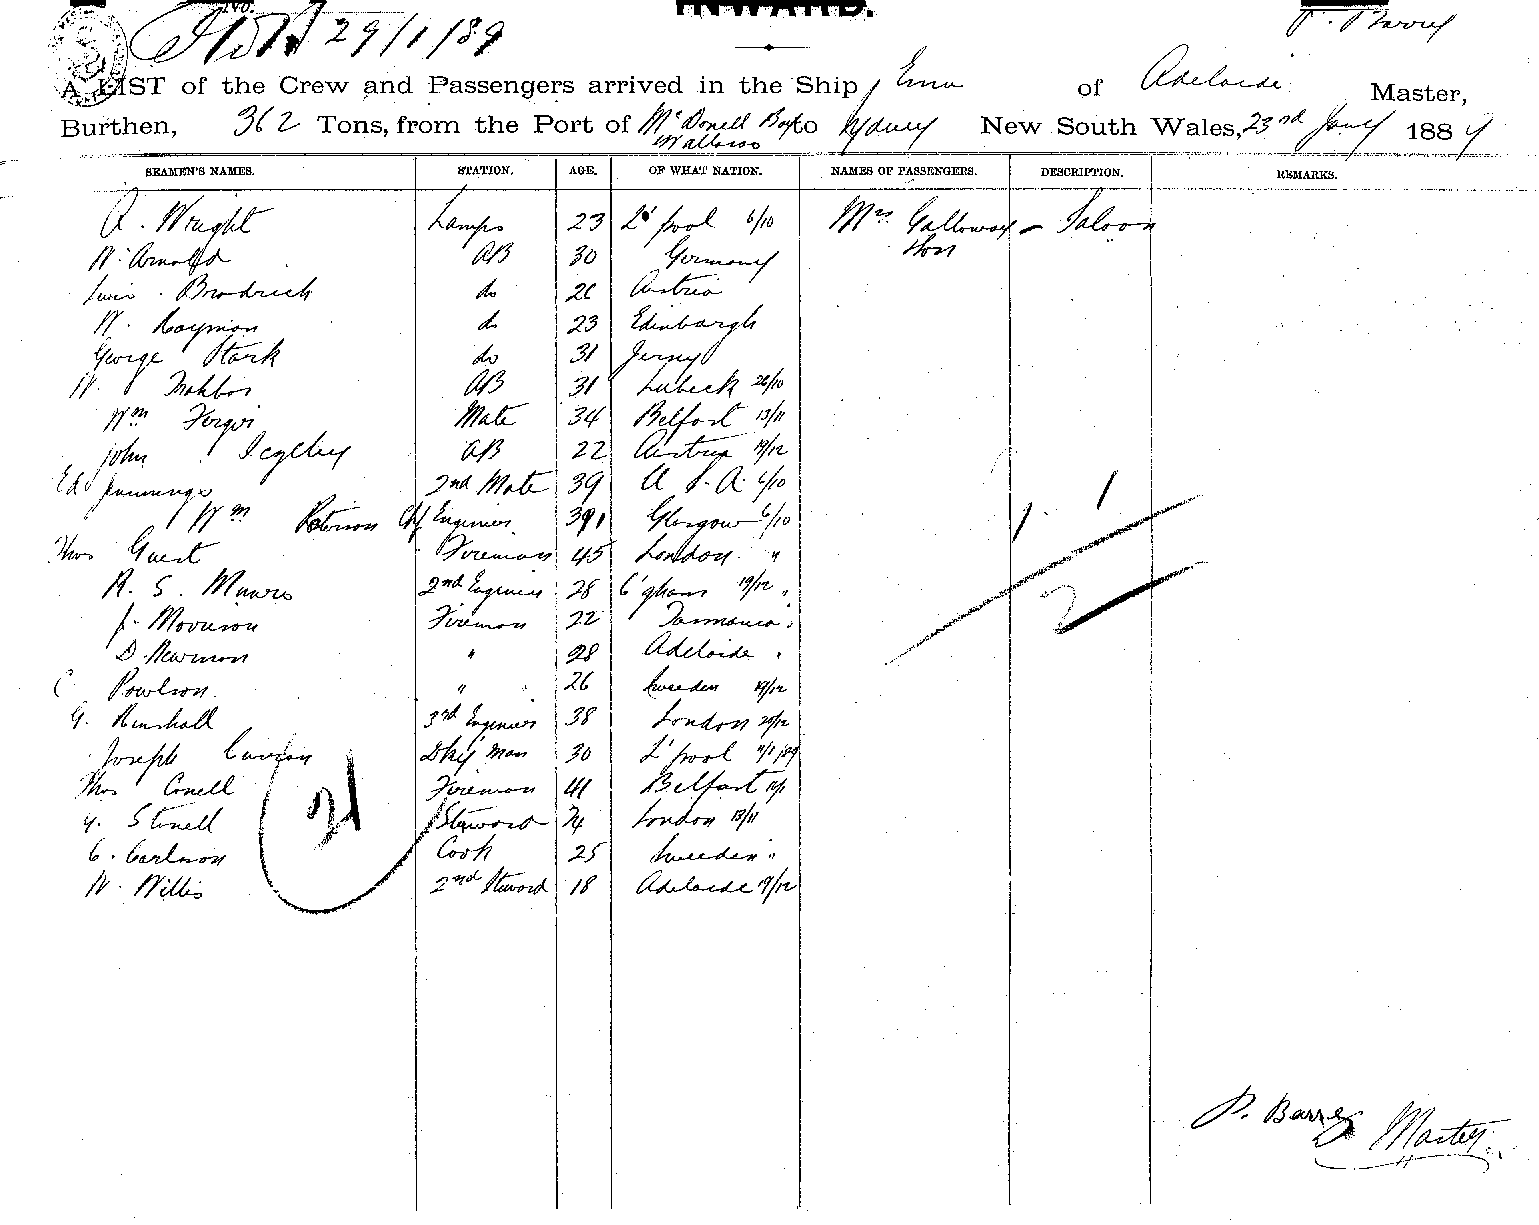 29/1/89
INWARD.
P. Barrey
A LIST of the Crew and Passengers arrived in the Ship Emu of Adelaide Master,
Burthen, 362 Tons, from the Port of McDonell Bay to Sydney New South Wales, 23rd Jany 1889
Wallaroo
SEAMEN'S NAMES. STATION. AGE. OF WHAT NATION. NAMES OF PASSENGERS. DESCRIPTION. REMARKS.
A. Wright Lamps 23 L'pool 6/10 Mrs Galloway - Saloon
W. Arnold AB 30 Germany & Son
Brodrick do 26 Austria
W. do 23 Edinburgh
George Stark do 31 Jersey
W. AB 31 Lubeck 26/10
Wm Mate 34 Belfast 13/11
John AB 22 Austria 19/12
Ed Jennings 2nd Mate 39 U.S.A. 6/10
Wm Peterson Chf Engineer 39 Glasgow 6/10
1 1
Thos Guest Fireman 45 London "
R. S. Munro 2nd Engineer 28 19/12
2
J. Morrison Fireman 22 Tasmania "
D. Newman " 28 Adelaide "
C Powlson " 26 Sweden 19/12
G. Henshall 3rd Engineer 38 London 20/12
Joseph Dky Man 30 L'pool 11/1/89
Thos Conell Fireman 41 Belfast
21
Y. Stinell Steward London 13/11
C. Carlson Cook 25 Sweden "
W. Willis 2nd Steward 18 Adelaide 19/12
P. Barrey Master